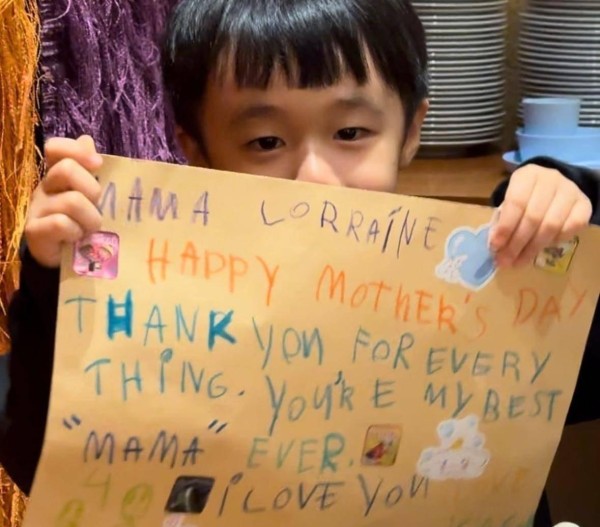 MAMA LORRAINE
HAPPY MOTHER'S DAY
THANK YOU FOR EVERY
THING. YOU'RE MY BEST
"MAMA" EVER.
I LOVE YOU